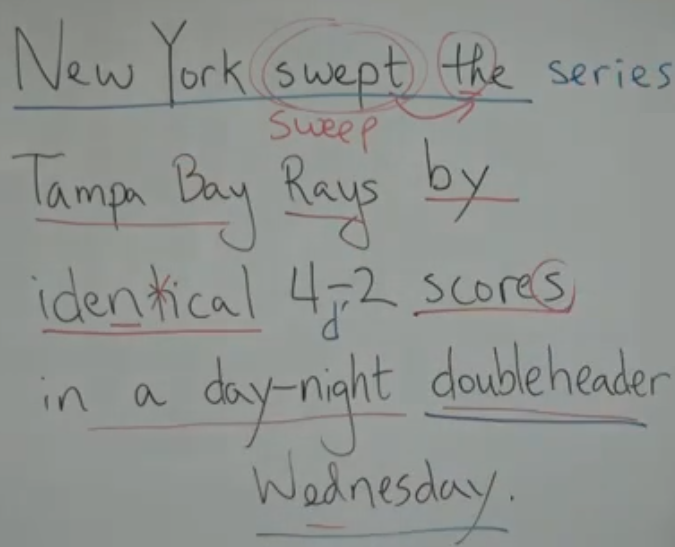 New York swept the series
sweep
Tampa Bay Rays by
identical 4-2 scores
d'
in a day-night doubleheader
Wednesday.